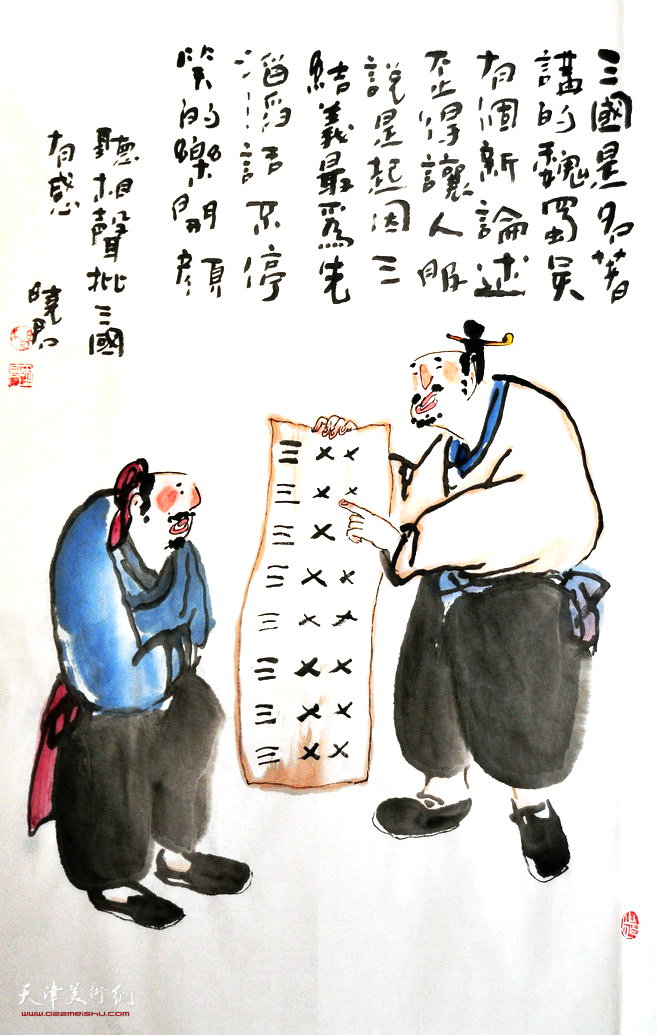 三國是名著
講的魏蜀吳
有個新論述
不得讓人服
說是起因三
結義最爲先
滔滔語不停
笑的樂開顏
聽相聲批三國
有感
曉君
三 × ×
三 × ×
三 ×
三 × ×
三 × ×
三 × ×
三 × ×
三 × ×
天津美術網
www.022meishu.com